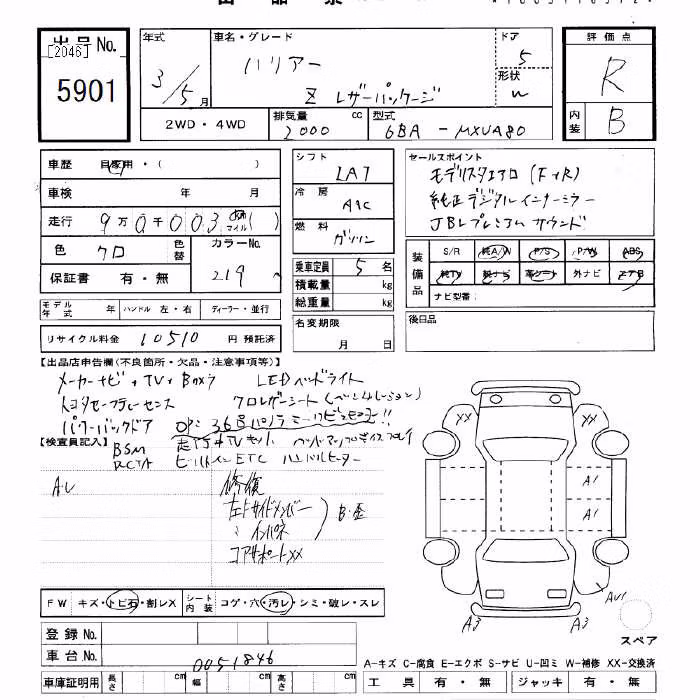 出品No.
[2046]
5901
年式
3/5月
車名・グレード
ハリアー
Z レザーパッケージ
ドア
5
形状
W
評価点
R
内装
B
2WD・4WD
排気量
2000 cc
型式
6BA-MXUA80
車歴
自家用・( )
車検
年 月
走行
9万0千003 km マイル ( )
色
クロ
色替
カラーNo.
219
保証書 有・無
シフト
IAT
冷房
AAC
燃料
ガソリン
乗車定員 5 名
積載量 kg
総重量 kg
セールスポイント
モデリスタエアロ (F+R)
純正デジタルインナーミラー
JBLプレミアムサウンド
装備品
S/R 純A/W P/S P/W ABS
純TV 純ナビ 革シート 外ナビ エアB
ナビ型番:
モデル年式 年 ハンドル 左・右 ディーラー・並行
リサイクル料金 10510 円 預託済
名変期限
月 日
後日品
【出品店申告欄(不良箇所・欠品・注意事項等)】
メーカーナビ+TV+Bカメラ LEDヘッドライト
トヨタセーフティーセンス クロレザーシート(ベンチレーション)
パワーバックドア
【検査員記入】
BSM
RCTA ビルトインETC
AU
修復
左右サイドメンバー
インパネ
B・歪
コアサポートXX
XX
XX
A1
A1
AU1
A3
A3
FW キズ・トビ石・割レX
シート内装 コゲ・穴・汚レ・シミ・破レ・スレ
登録No.
車台No. 0051846
車庫証明用 長さ cm 幅 cm 高さ cm
スペア
A-キズ C-腐食 E-エクボ S-サビ U-凹ミ W-補修 XX-交換済
工具 有・無 ジャッキ 有・無